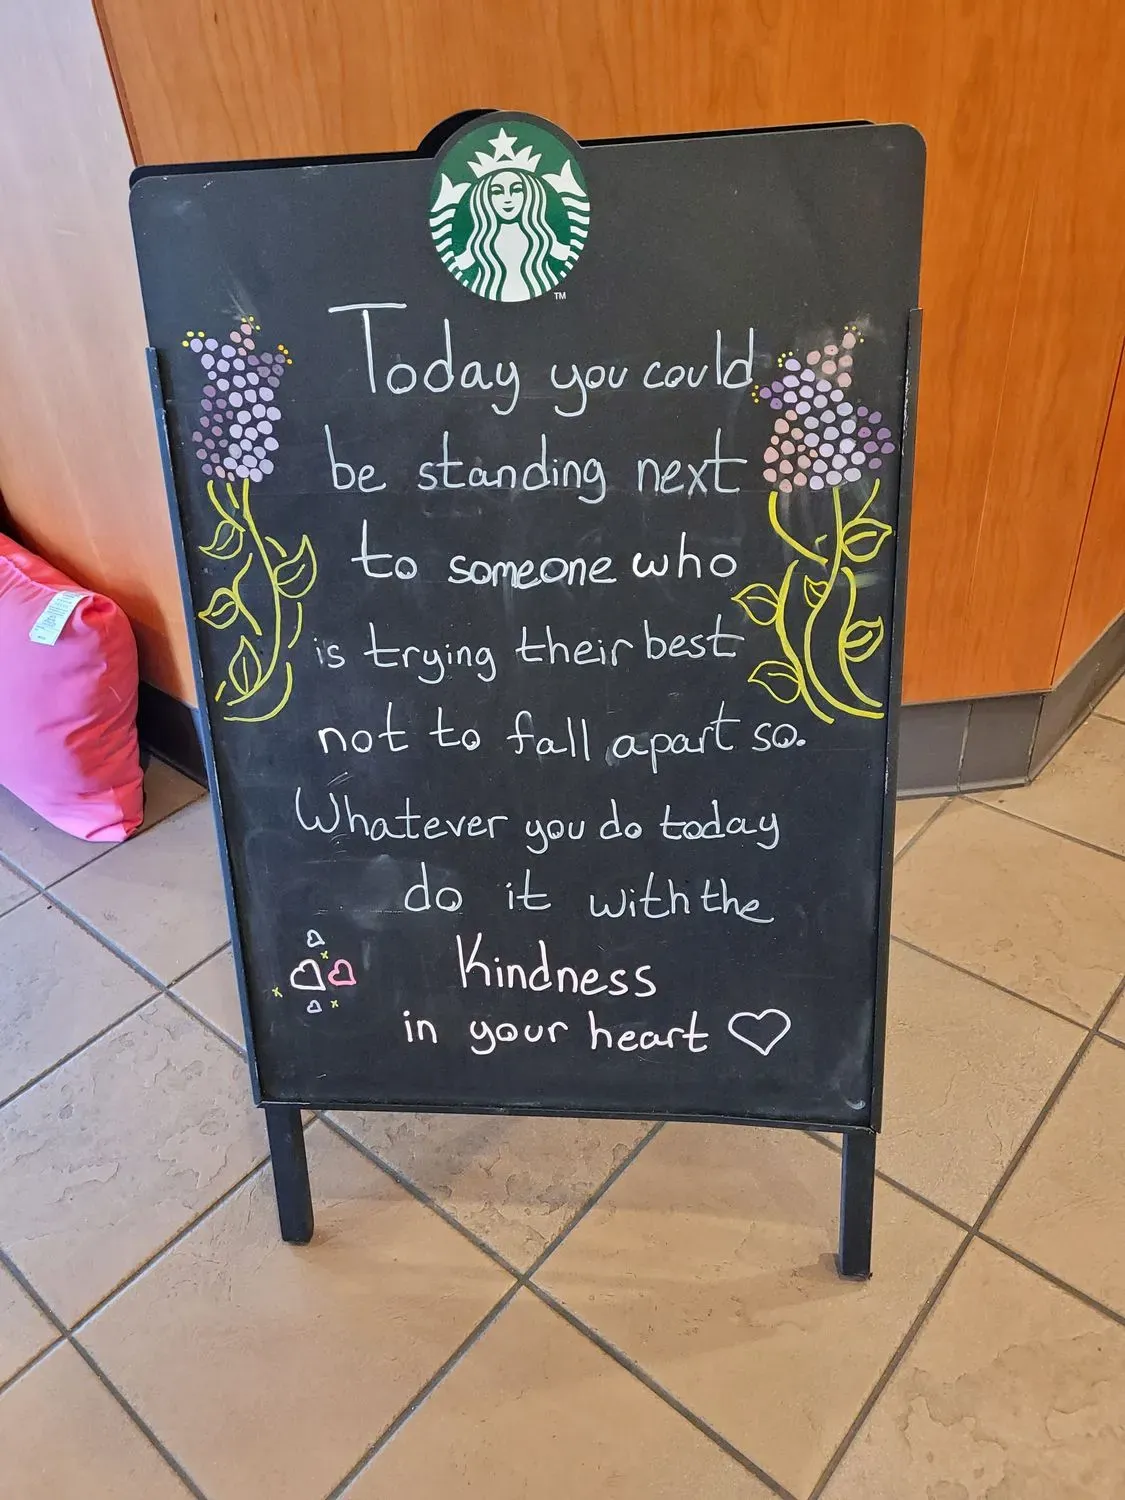 TM
Today you could
be standing next
to someone who
is trying their best
not to fall apart so.
Whatever you do today
do it with the
Kindness
in your heart